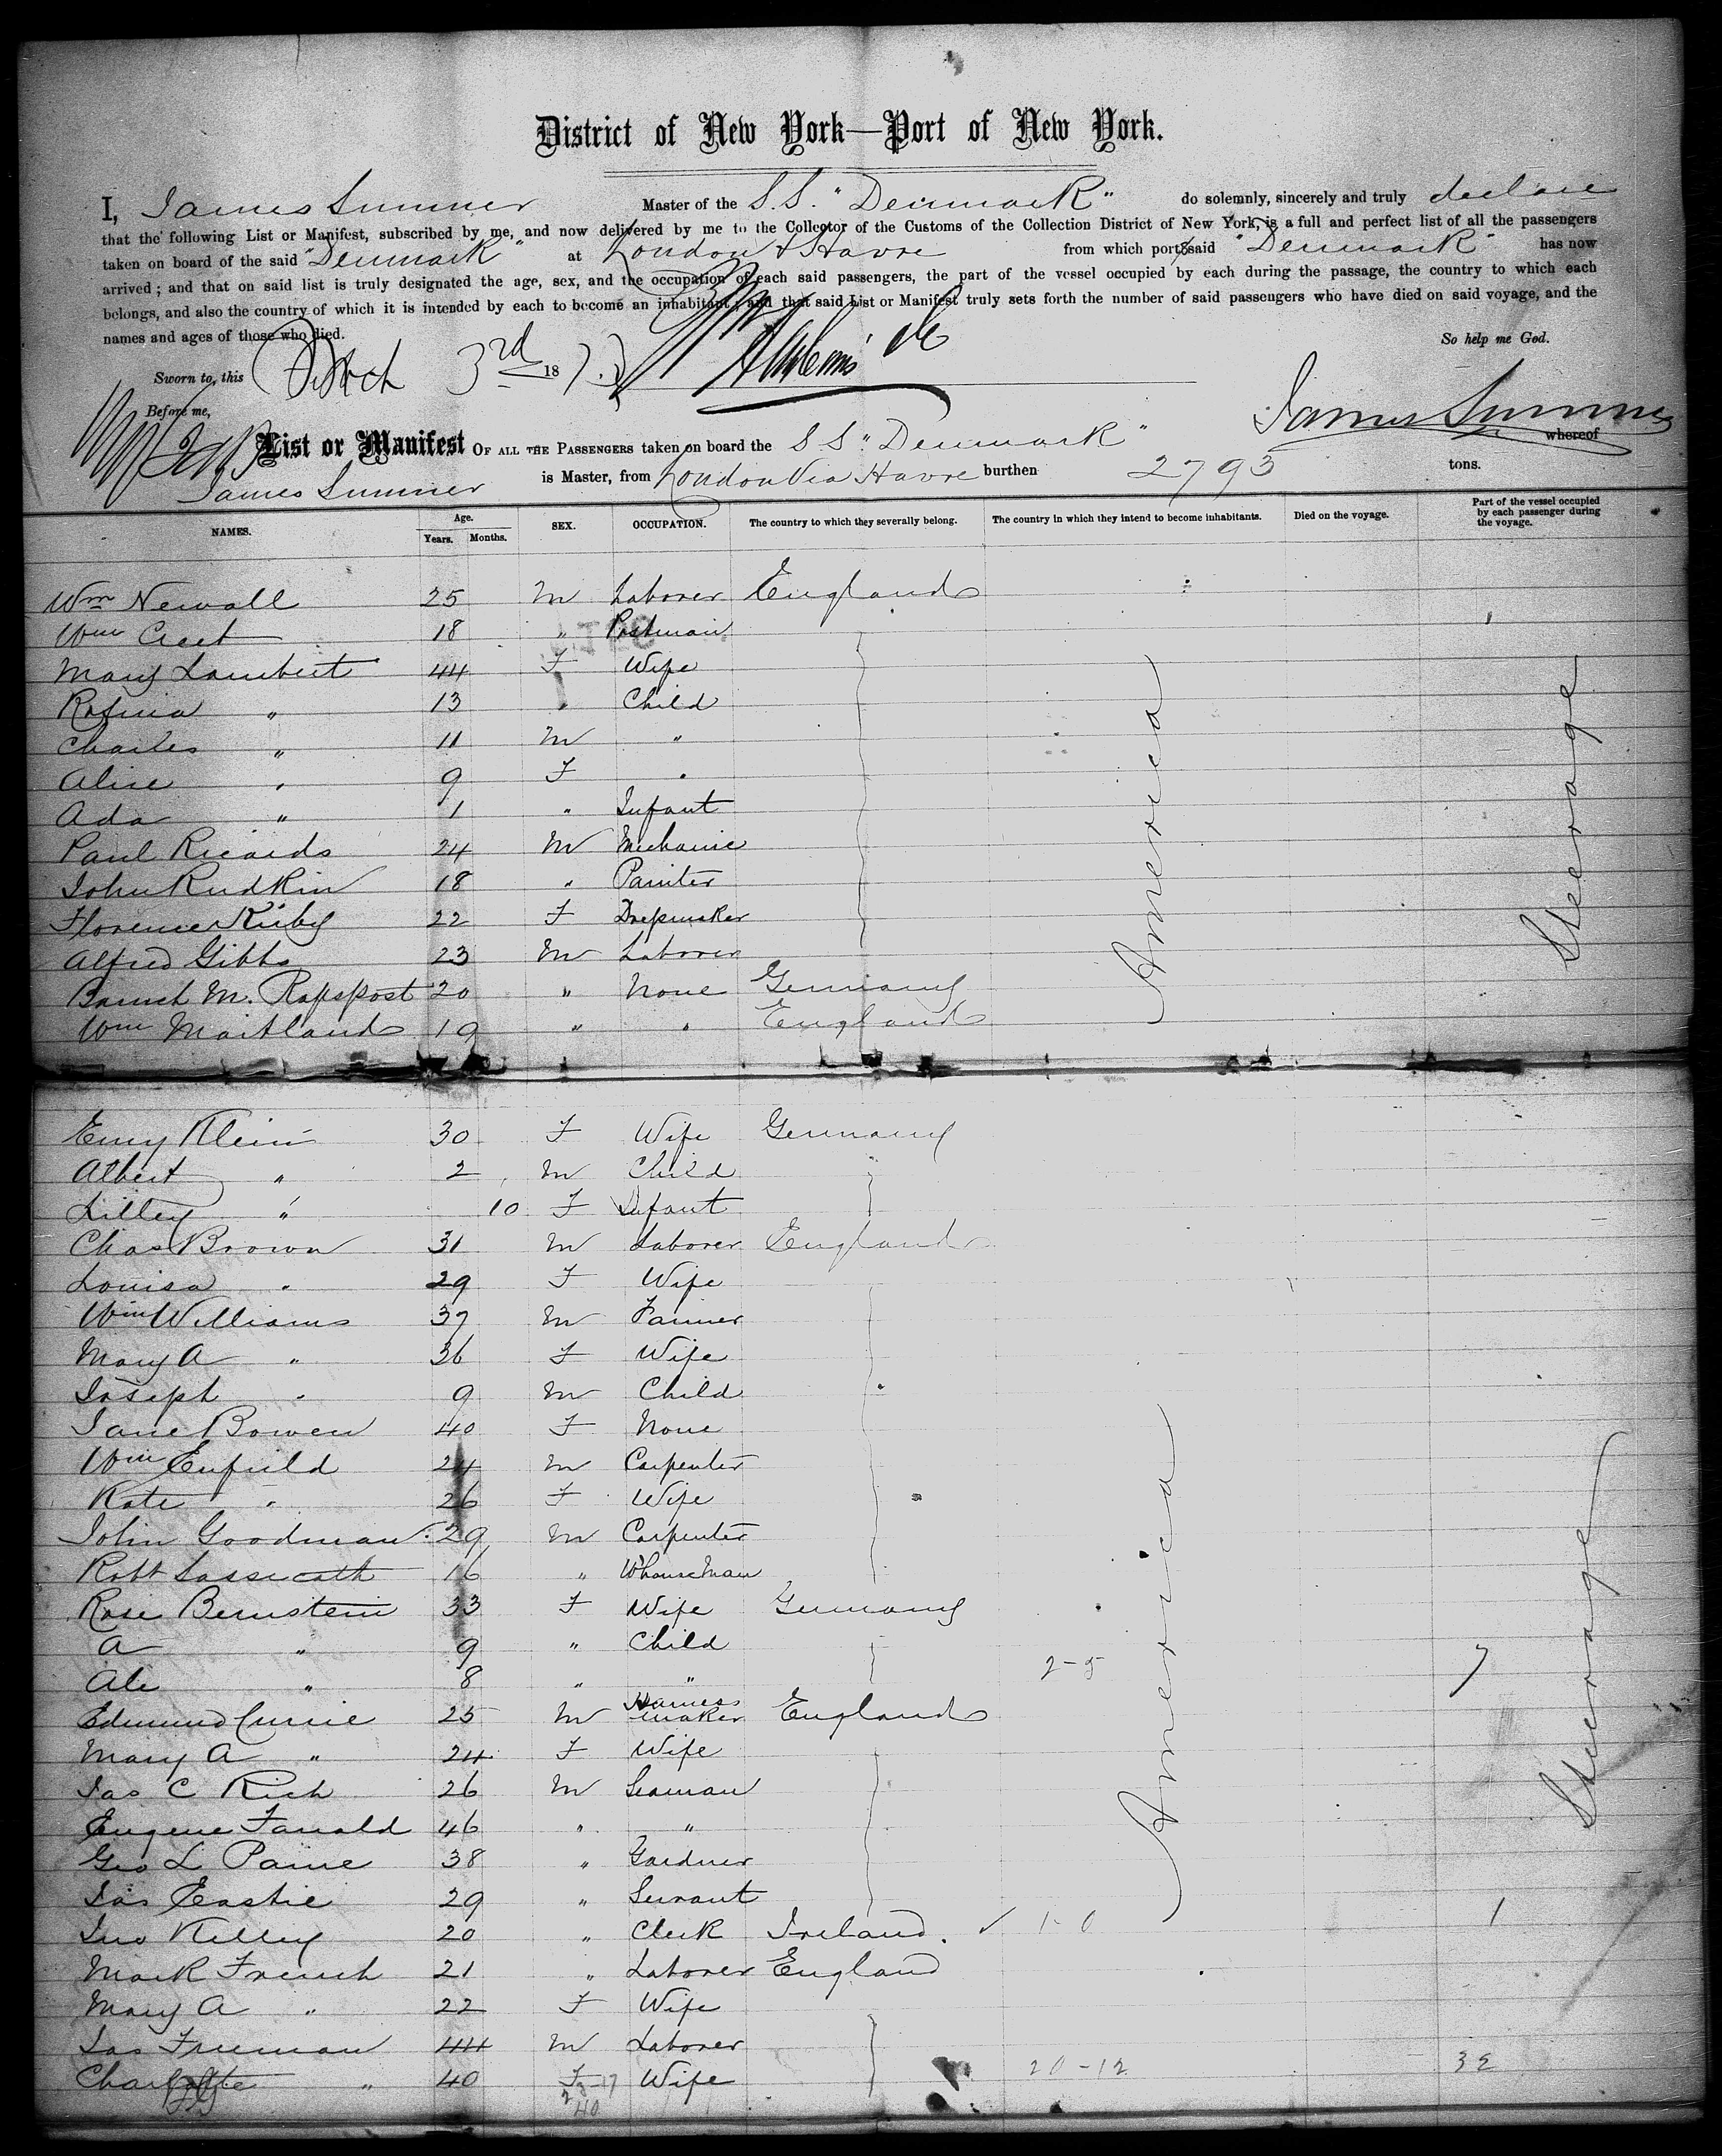 District of New York—Port of New York.
I, James Sumner Master of the S.S. "Denmark" do solemnly, sincerely and truly declare
that the following List or Manifest, subscribed by me, and now delivered by me to the Collector of the Customs of the Collection District of New York, is a full and perfect list of all the passengers
taken on board of the said "Denmark" at London & Havre from which port said "Denmark" has now
arrived; and that on said list is truly designated the age, sex, and the occupation of each said passengers, the part of the vessel occupied by each during the passage, the country to which each
belongs, and also the country of which it is intended by each to become an inhabitant; and that said List or Manifest truly sets forth the number of said passengers who have died on said voyage, and the
names and ages of those who died. So help me God.
Sworn to, this March 3rd 187
Before me, James Sumner
List or Manifest OF ALL THE PASSENGERS taken on board the S S "Denmark" whereof
James Sumner is Master, from London Via Havre burthen 2793 tons.
NAMES. Age. Years. Months. SEX. OCCUPATION. The country to which they severally belong. The country in which they intend to become inhabitants. Died on the voyage. Part of the vessel occupied by each passenger during the voyage.
Wm Newall 25 M Laborer England
Wm 18 " Postman
Mary Lambert 44 F Wife
Rosina " 13 " Child
Charles " 11 M "
Alice " 9 F "
Ada " 1 " Infant
Paul Ricards 24 M Mechanic
John Rudkin 18 " Painter
Florence Kirby 22 F Dressmaker
Alfred Gibbs 23 M Laborer
Baruch M. Rapspost 20 " None Germany
Wm Maitland 19 " " England
America
Steerage
Emy Klein 30 F Wife Germany
Albert " 2 M Child
Lilley " 10 F Infant
Chas Brown 31 M Laborer England
Louisa " 29 F Wife
Wm Williams 37 M Farmer
Mary A " 36 F Wife
Joseph " 9 M Child
Jane Bowen 40 F None
Wm Enfield 24 M Carpenter
Kate " 26 F Wife
John Goodman 29 M Carpenter
Robt 16 " W'houseman
Rose Bernstein 33 F Wife Germany
A " 9 " Child
Ale " 8 " " 2-5 7
Edmund Currie 25 M Harness maker England
Mary A " 24 F Wife
Jas C Rich 26 M Seaman
Eugene Fanald 46 " "
Geo L Paine 38 " Gardner
Jas Eastie 29 " Servant
Jno Kelley 20 " Clerk Ireland. ✓ 1-0 1
Mark French 21 " Laborer England
Mary A " 22 F Wife
Jas Freeman 44 M Laborer
Charlotte " 40 F Wife 20-12 32
America
Steerage
23-17
40